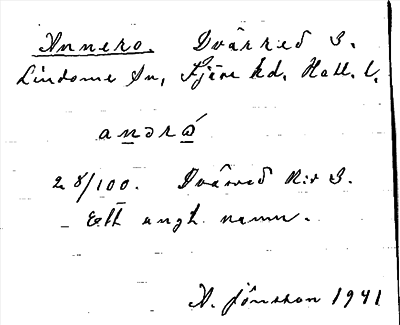 Annero. Dvärred S.
Lindome sn, Fjäre hd, Hall. l.
anərώ
2 8/100. Dvärred N:r 3.
Ett ängh. namn.
A. Jönsson 1941